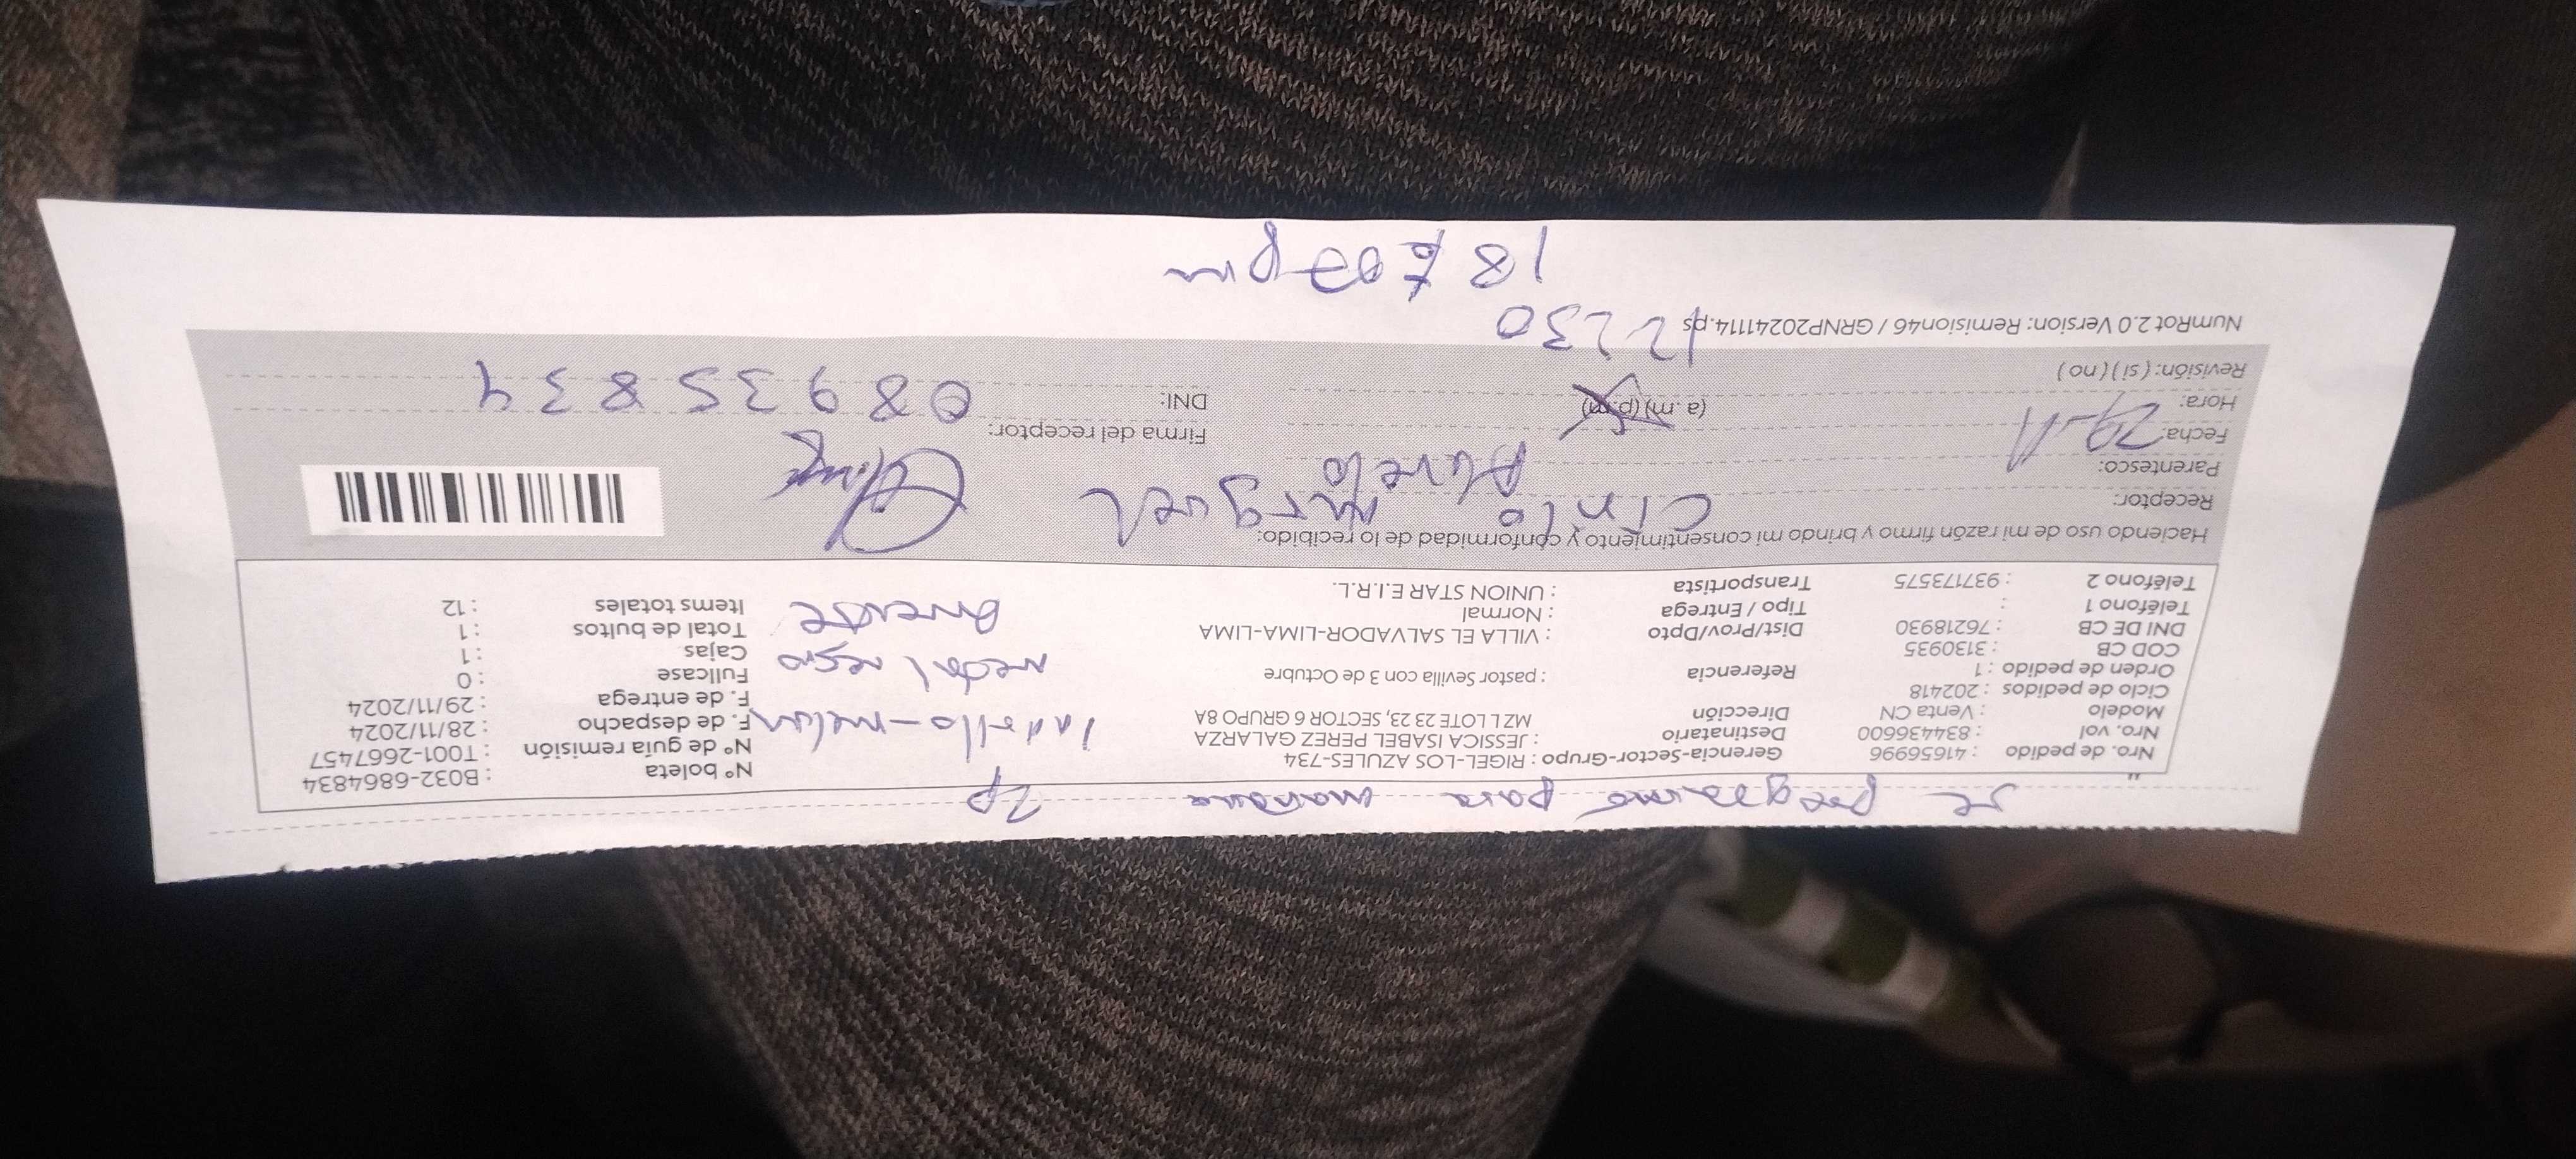 se programo para mañana 2p
Nro. de pedido : 41656996 Gerencia-Sector-Grupo : RIGEL-LOS AZULES-734 N° boleta : B032-6864834
Nro. vol : 834436600 Destinatario : JESSICA ISABEL PEREZ GALARZA N° de guía remisión : T001-2667457
Modelo : Venta CN Dirección MZ L LOTE 23 23, SECTOR 6 GRUPO 8A ladrillo-melon F. de despacho : 28/11/2024
Ciclo de pedidos : 202418 F. de entrega : 29/11/2024
Orden de pedido : 1 Referencia : pastor Sevilla con 3 de Octubre metal negro Fullcase : 0
COD CB : 3130935 Cajas : 1
DNI DE CB : 76218930 Dist/Prov/Dpto : VILLA EL SALVADOR-LIMA-LIMA Total de bultos : 1
Teléfono 1 : Tipo / Entrega : Normal Items totales : 12
Teléfono 2 : 937173575 Transportista : UNION STAR E.I.R.L.
Haciendo uso de mi razón firmo y brindo mi consentimiento y conformidad de lo recibido:
Receptor: Cinlo Miguel
Parentesco: Abuelo
Fecha: 29-11 Firma del receptor:
Hora: (a. m) (p. m) DNI: 08935834
Revisión: (si) (no)
12230
NumRot 2.0 Version: Remision46 / GRNP20241114.ps
18 03 pm